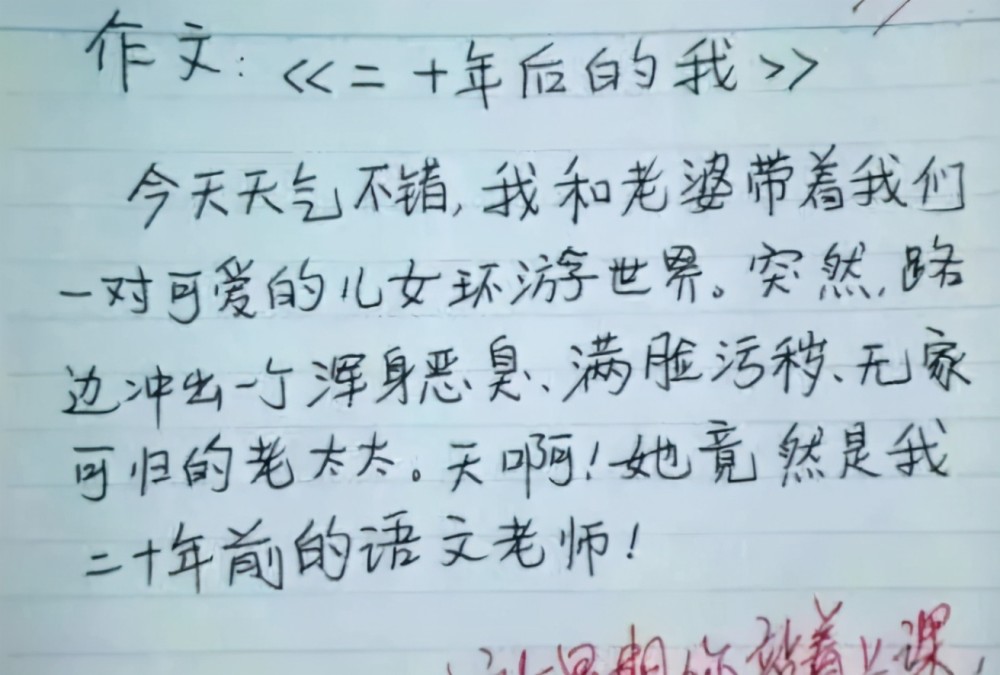 作文:《二十年后的我》
今天天气不错,我和老婆带着我们
一对可爱的儿女环游世界。突然,路
边冲出一个浑身恶臭、满脸污秽、无家
可归的老太太。天啊!她竟然是我
二十年前的语文老师!
星期你站着上课